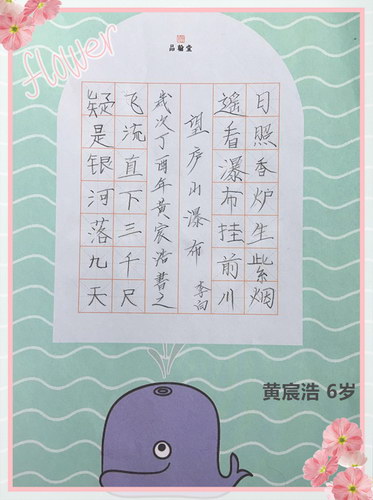 flower
品翰堂
日照香炉生紫烟
遥看瀑布挂前川
望庐山瀑布 李白
歲次丁酉年黄宸浩書之
飞流直下三千尺
疑是银河落九天
黄宸浩 6岁